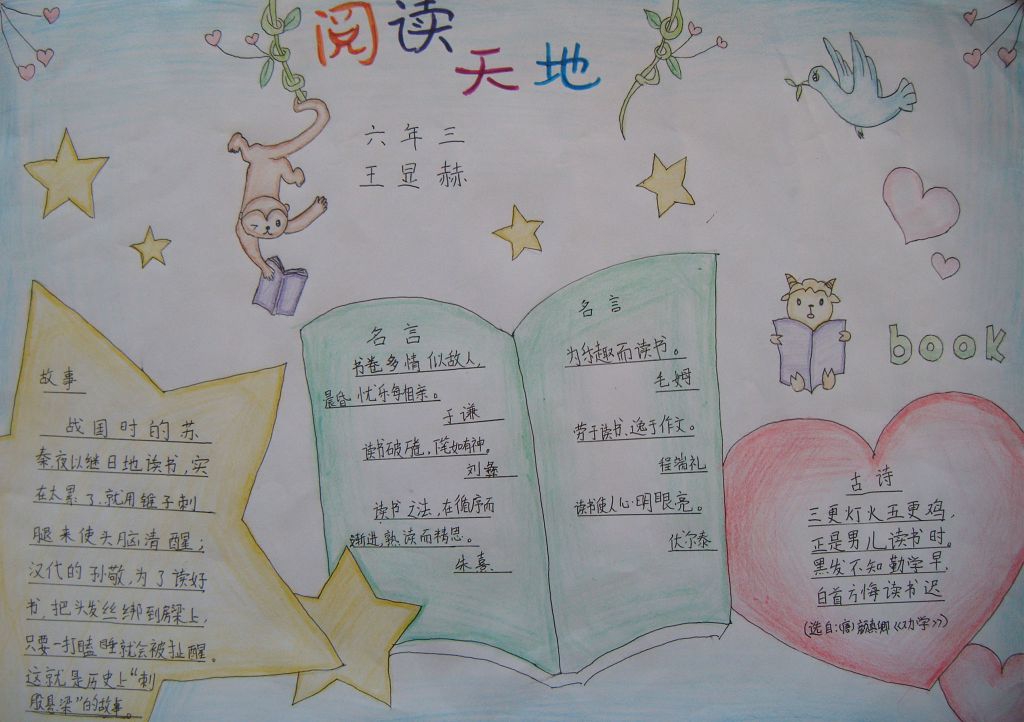 阅读
天地
六年三
王显赫
故事
战国时的苏
秦,夜以继日地读书,实
在太累了,就用锥子刺
腿来使头脑清醒;
汉代的孙敬,为了读好
书,把头发丝绑到房梁上,
只要一打瞌睡就会被扯醒。
这就是历史上“刺
股悬梁”的故事。
名言
书卷多情似故人,
晨昏忧乐每相亲。
于谦
读书破万卷,下笔如有神。
刘彝
读书之法,在循序而
渐进,熟读而精思。
朱熹
名言
为乐趣而读书。
毛姆
劳于读书、逸于作文。
程端礼
读书使人心明眼亮。
伏尔泰
book
古诗
三更灯火五更鸡,
正是男儿读书时。
黑发不知勤学早,
白首方悔读书迟
(选自:(唐)颜真卿《劝学》)